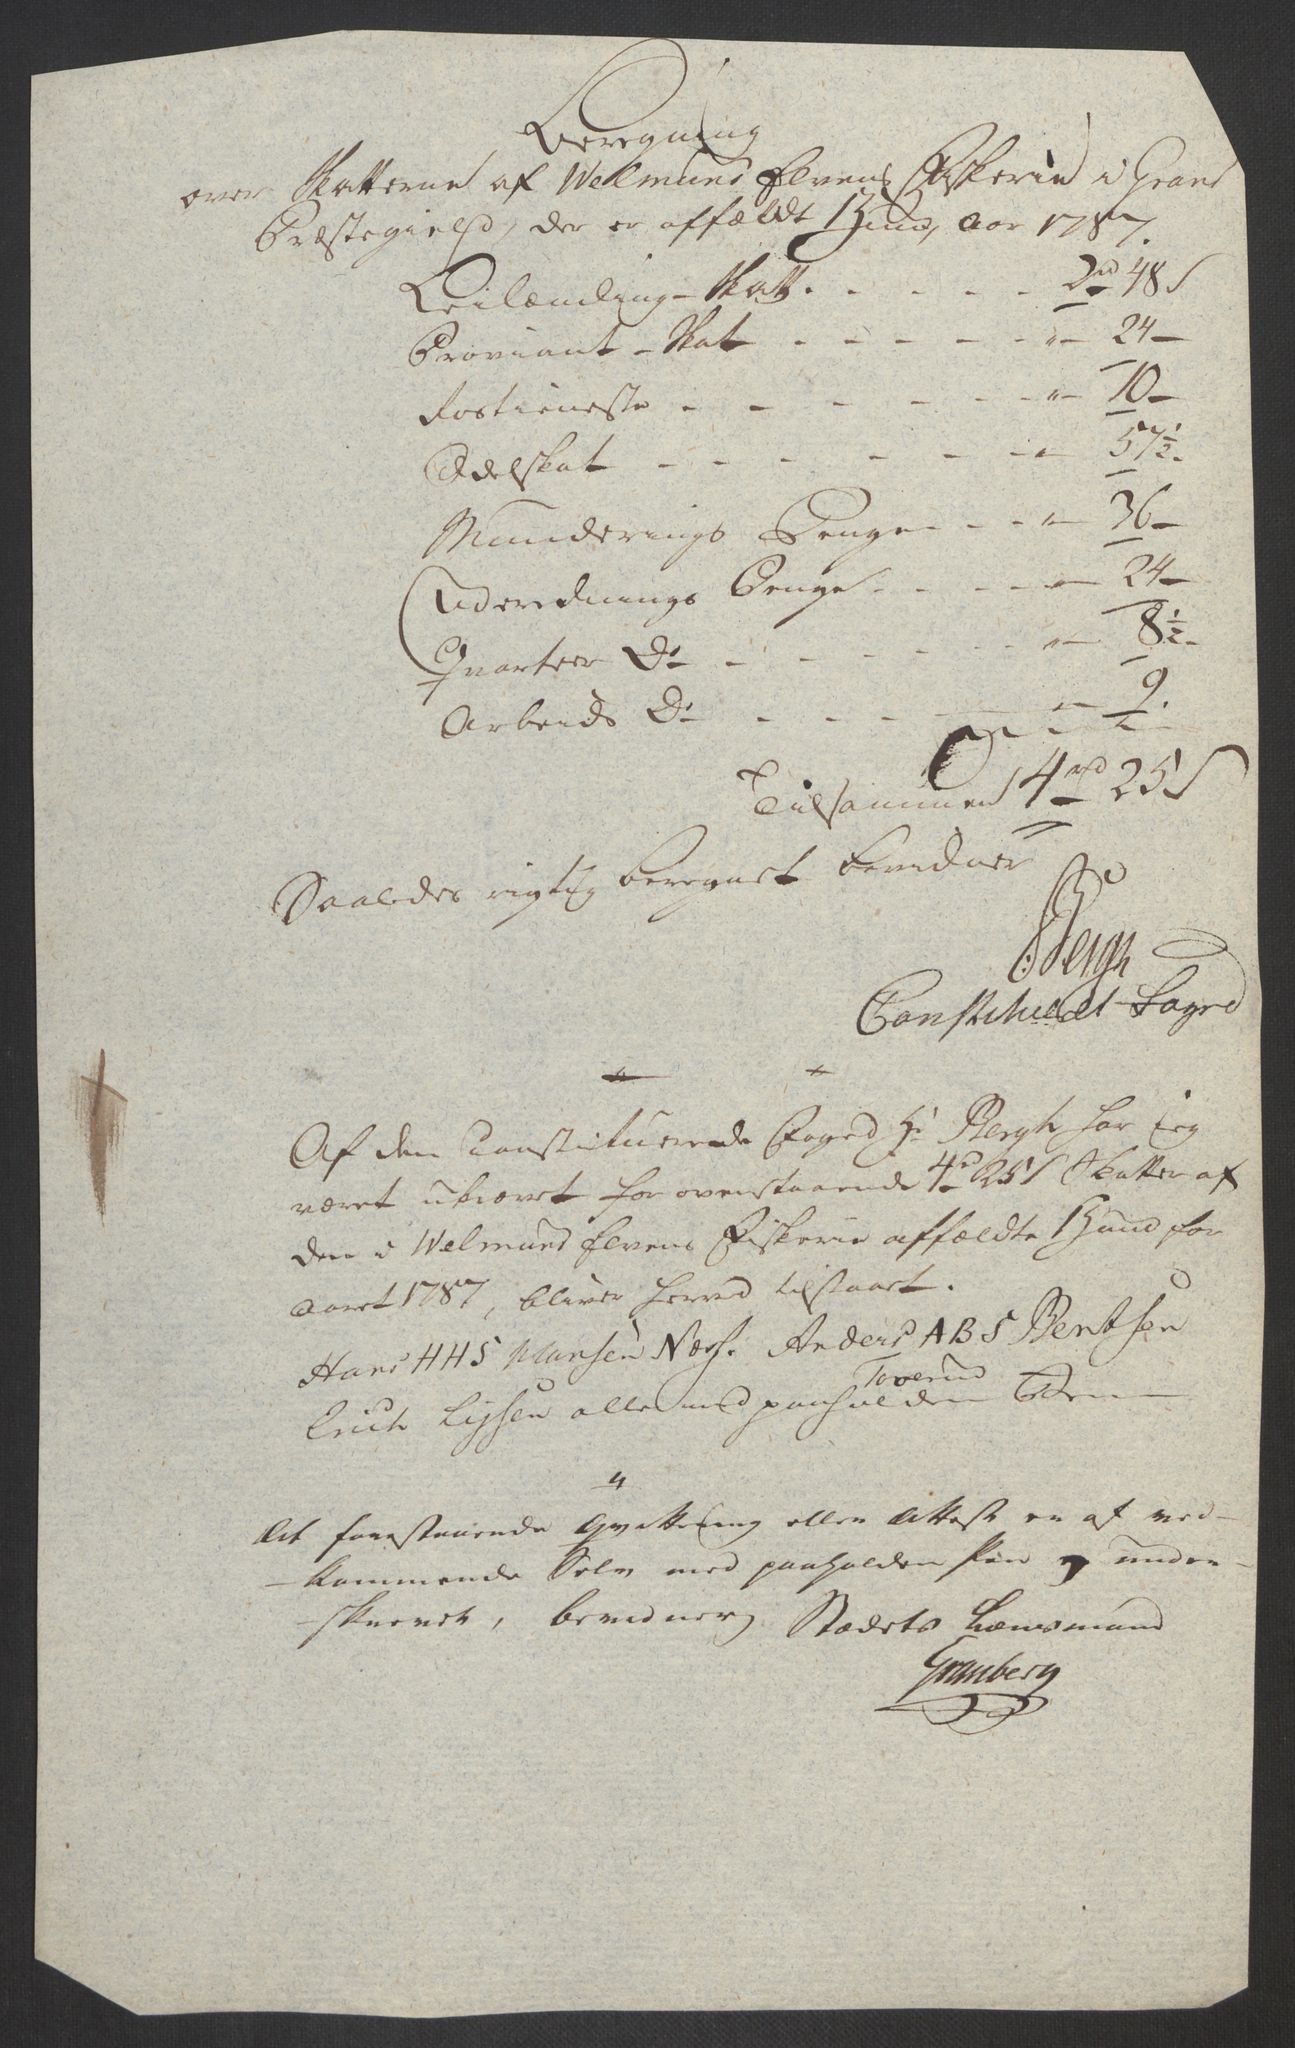 Beregning
over Skatterne af Welmund Elvens Fiskerie i Grans
Præstegield, der er affældt 1 Hund, aar 1787.
Leilændings-Skatt - - - - 2rd 48 s
Proviant-Skat - - - - - - " - 24 -
Rostieneste - - - - - - " - 10 -
Odelskat - - - - - - " - 57 1/2 -
Munderings Penge - - - " - 36 -
Udrednings Penge - - - " - 24 -
Qvarteer Do - - - - - " - 8 1/2 -
Arbeids Do - - - - - " - 9.
Tilsammen 4rd 25 s
Saaledes rigtig beregnet bevidner
Bergh
Constitueret Foged
Af den Constituerede Foged Hr Bergh har ieg
været ukrævet for ovenstaaende 4rd 25 s Skatter af
den i Welmund Elvens Fiskerie affældte 1 Hund for
aaret 1787, bliver herved tilstaaet.
Hans HHS Hansen Næss. Anders ABS Bentsen
Toverud
Erich Lissen alle med paaholden Pen
At forestaaende Qvittering eller Attest er af ved-
-kommende Selv med paaholden Pen under-
-skrevet, bevidner Stædets Lænsmand
Granberg